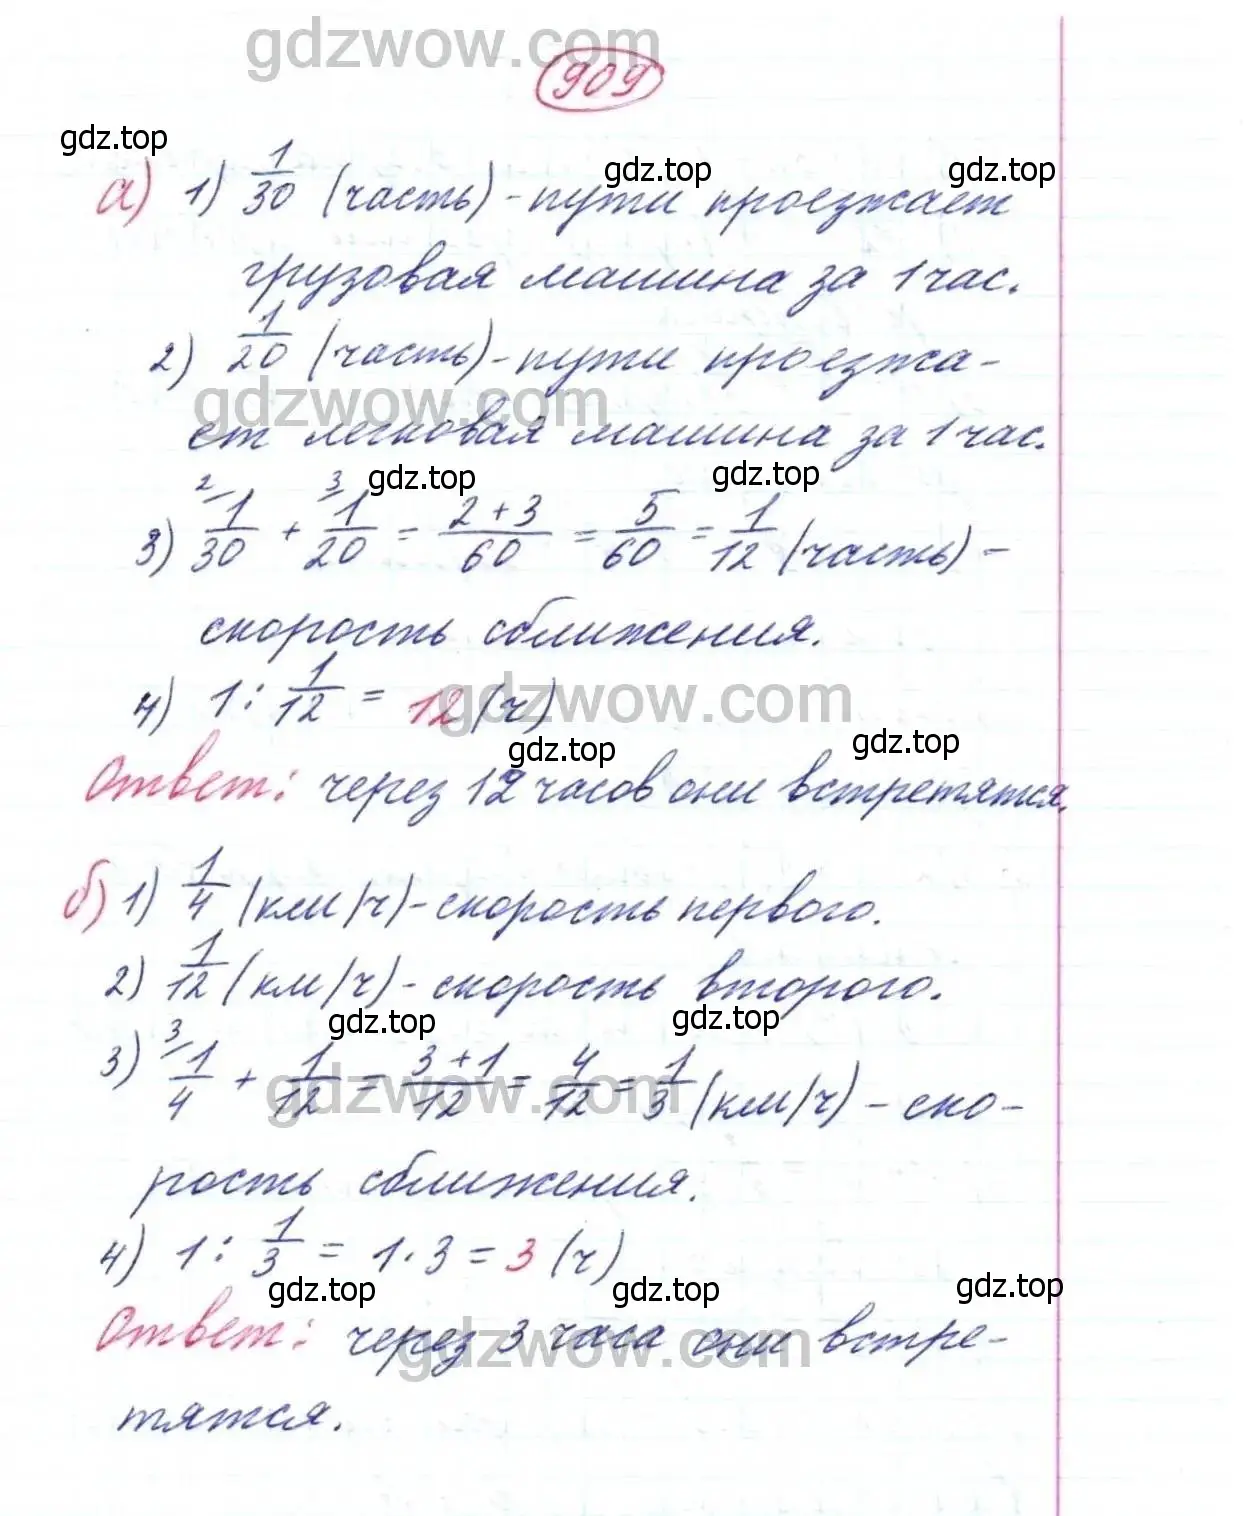 gdzwow.com
909
gdz.top
gdz.top
а) 1) 1/30 (часть) - пути проезжает
грузовая машина за 1 час.
2) 1/20 (часть) - пути проезжа-
gdzwow.com
ет легковая машина за 1 час.
gdz.top
gdz.top
3) 2/ 1/30 + 3/ 1/20 = 2+3/60 = 5/60 = 1/12 (часть) -
скорость сближения.
gdzwow.com
4) 1 : 1/12 = 12 (ч)
gdz.top
gdz.top
Ответ: через 12 часов они встретятся.
б) 1) 1/4 (км/ч) - скорость первого.
2) 1/12 (км/ч) - скорость второго.
gdz.top
gdz.top
3) 3/ 1/4 + 1/12 = 3+1/12 = 4/12 = 1/3 (км/ч) - ско-
gdzwow.com
рость сближения.
4) 1 : 1/3 = 1 · 3 = 3 (ч)
gdz.top
gdz.top
gdz.top
Ответ: через 3 часа они встре-
gdzwow.com
тятся.